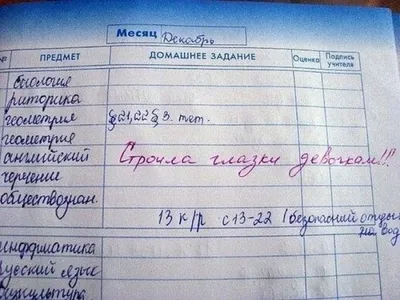 Месяц Декабрь
№ ПРЕДМЕТ ДОМАШНЕЕ ЗАДАНИЕ Оценка Подпись учителя
биология
риторика
геометрия §21,22 § 3. тет.
геометрия
английский Строила глазки девочкам!!!
черчение
обществознан.
13 к/р с 13-22 / безопасный отдых на вод
информатика
русский язык
физкультура